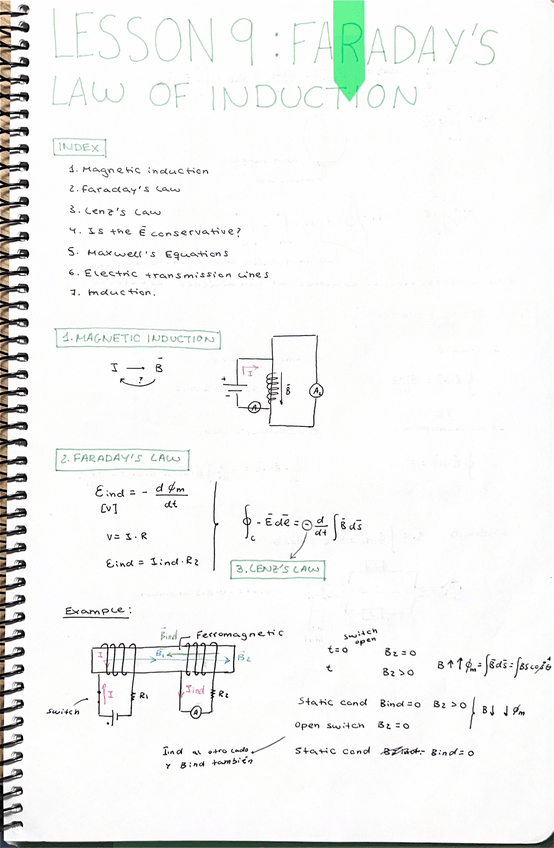 LESSON 9: FARADAY'S
LAW OF INDUCTION
INDEX
1. Magnetic induction
2. Faraday's Law
3. Lenz's Law
4. Is the E conservative?
5. Maxwell's Equations
6. Electric transmission lines
7. Induction.
1. MAGNETIC INDUCTION
I → B
?
+
-
I
B
A
A₂
2. FARADAY'S LAW
Eind = - dϕm/dt
[V]
V = I·R
Eind = Iind·R₂
∮c - E dl = - d/dt ∫ B ds
3. LENZ'S LAW
Example:
Bind
Ferromagnetic
I
B₁
B₂
I
R₁
Iind
R₂
switch
A
switch open
t=0 B₂=0
t B₂>0
B↑↑ϕm = ∫Bds =
Static cond Bind=0 B₂>0
Open switch B₂=0
B↓ ↓ϕm
Static cond Bind=0
Iind al otro lado
y Bind también